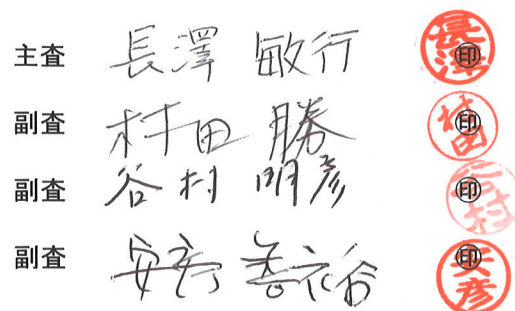 主査 長澤 敏行 印 長澤
副査 村田 勝 印 村田
副査 谷村 明彦 印 谷村
副査 印